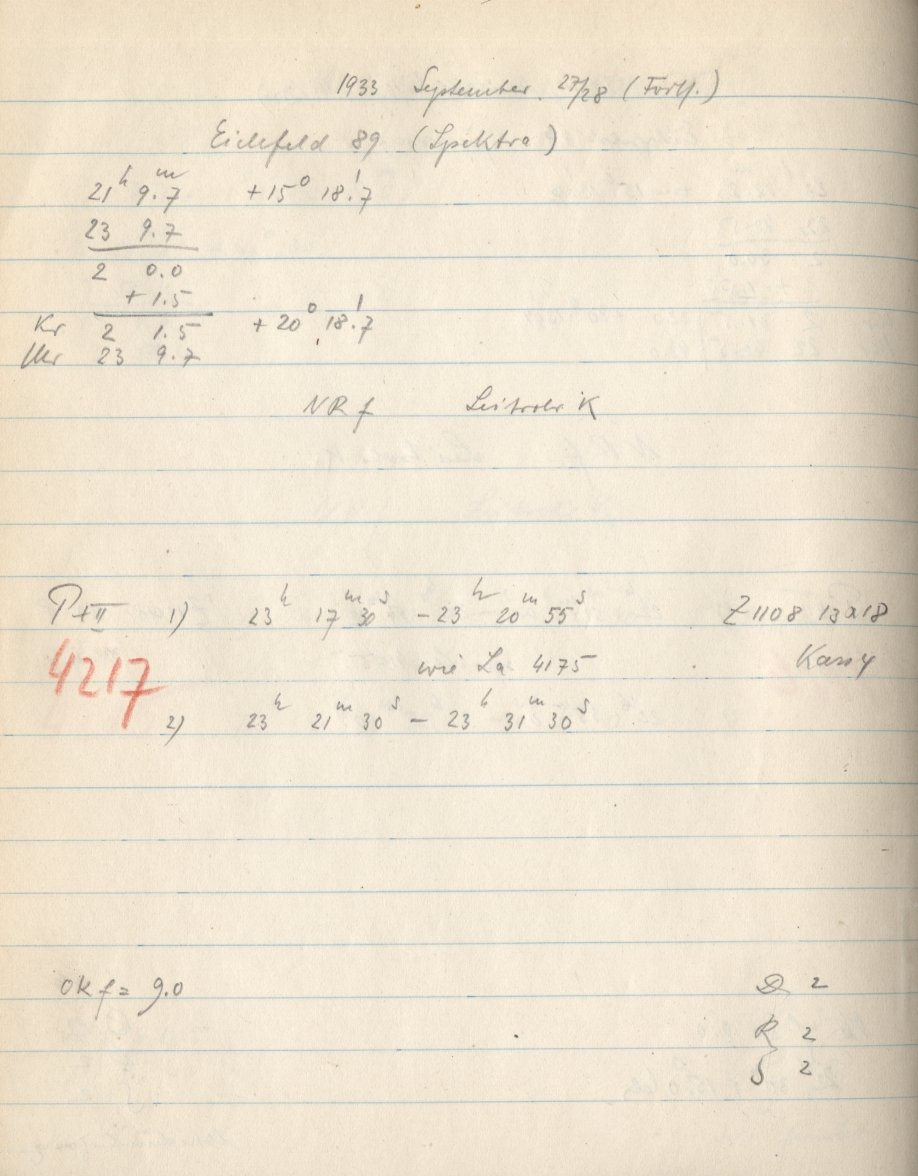 1933 September 27/28 (Forts.)
Eichfeld 89 (Spektra)
21h 9.m7 +15° 18.'7
23 9.7
2 0.0
+1.5
Kr 2 1.5 +20° 18.'7
Uhr 23 9.7
NRf Leitrohr K
P+II 1) 23h 17m 30s - 23h 20m 55s Z1108 13x18
4217 wie La 4175 Kassy
2) 23h 21m 30s - 23h 31m 30s
OKf = 9.0 D 2
R 2
S 2